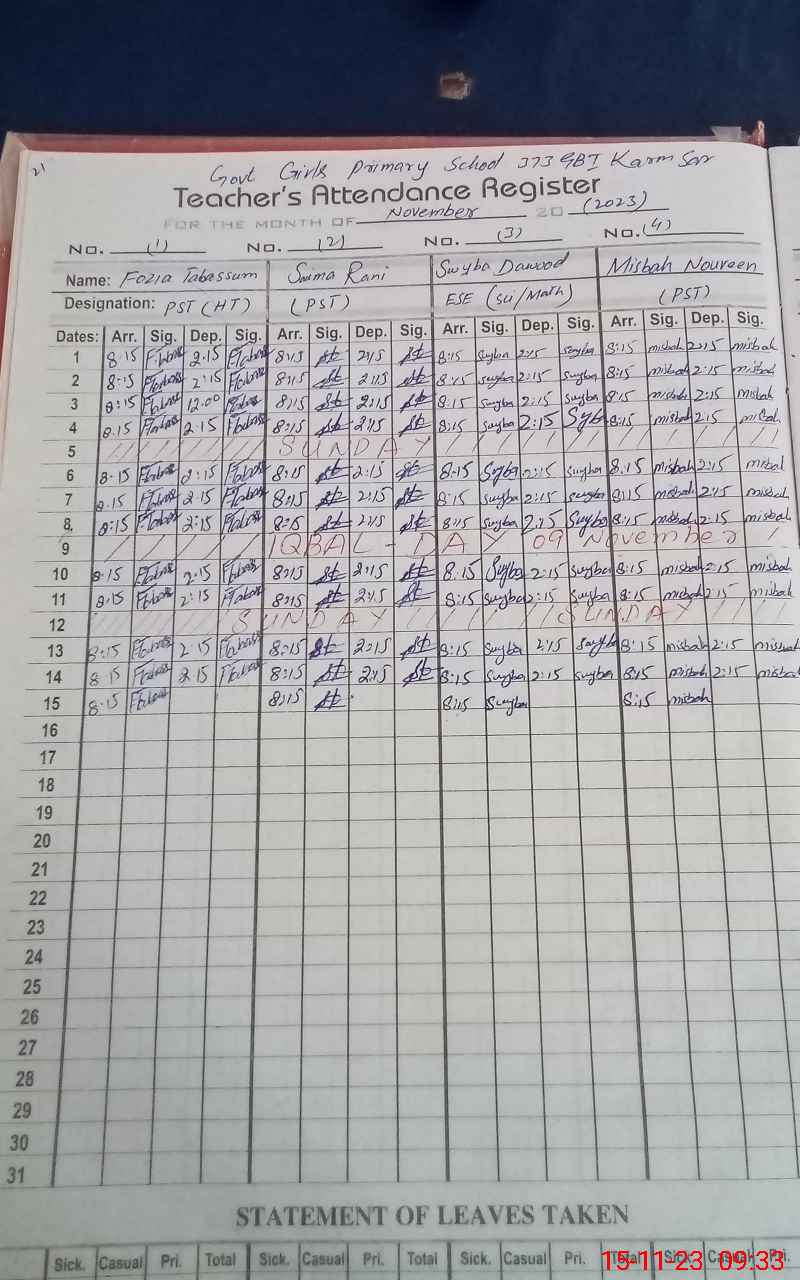 21
Govt Girls Primary School 373 GBI Karm Sar
Teacher's Attendance Register
FOR THE MONTH OF November 20 (2023)
No. (1) No. (2) No. (3) No. (4)
Name: Fozia Tabassum Saima Rani Swyba Dawood Misbah Noureen
Designation: PST (HT) (PST) ESE (Sci/Math) (PST)
Dates: Arr. Sig. Dep. Sig. Arr. Sig. Dep. Sig. Arr. Sig. Dep. Sig. Arr. Sig. Dep. Sig.
1 8:15 2:15 8:15 2:15 8:15 swyba 2:15 swyba 8:15 misbah 2:15 misbah
2 8:15 2:15 8:15 2:15 8:15 swyba 2:15 swyba 8:15 misbah 2:15 misbah
3 8:15 12:00 8:15 2:15 8:15 swyba 2:15 swyba 8:15 misbah 2:15 misbah
4 8:15 2:15 8:15 2:15 8:15 swyba 2:15 Swyba 8:15 misbah 2:15 misbah
5 SUNDAY
6 8:15 2:15 8:15 2:15 8:15 Swyba 2:15 swyba 8:15 misbah 2:15 misbah
7 8:15 2:15 8:15 2:15 8:15 swyba 2:15 swyba 8:15 misbah 2:15 misbah
8, 8:15 2:15 8:15 2:15 8:15 swyba 2:15 Swyba 8:15 misbah 2:15 misbah
9 IQBAL - DAY 09 November
10 8:15 2:15 8:15 2:15 8:15 Swyba 2:15 swyba 8:15 misbah 2:15 misbah
11 8:15 2:15 8:15 2:15 8:15 swyba 2:15 swyba 8:15 misbah 2:15 misbah
12 SUNDAY SUNDAY
13 8:15 2:15 8:15 2:15 8:15 swyba 2:15 swyba 8:15 misbah 2:15 misbah
14 8:15 2:15 8:15 2:15 8:15 swyba 2:15 swyba 8:15 misbah 2:15 misbah
15 8:15 8:15 8:15 swyba 8:15 misbah
16
17
18
19
20
21
22
23
24
25
26
27
28
29
30
31
STATEMENT OF LEAVES TAKEN
Sick. Casual Pri. Total Sick. Casual Pri. Total Sick. Casual Pri. Total Sick. Casual Pri.
15-11-23 09:33